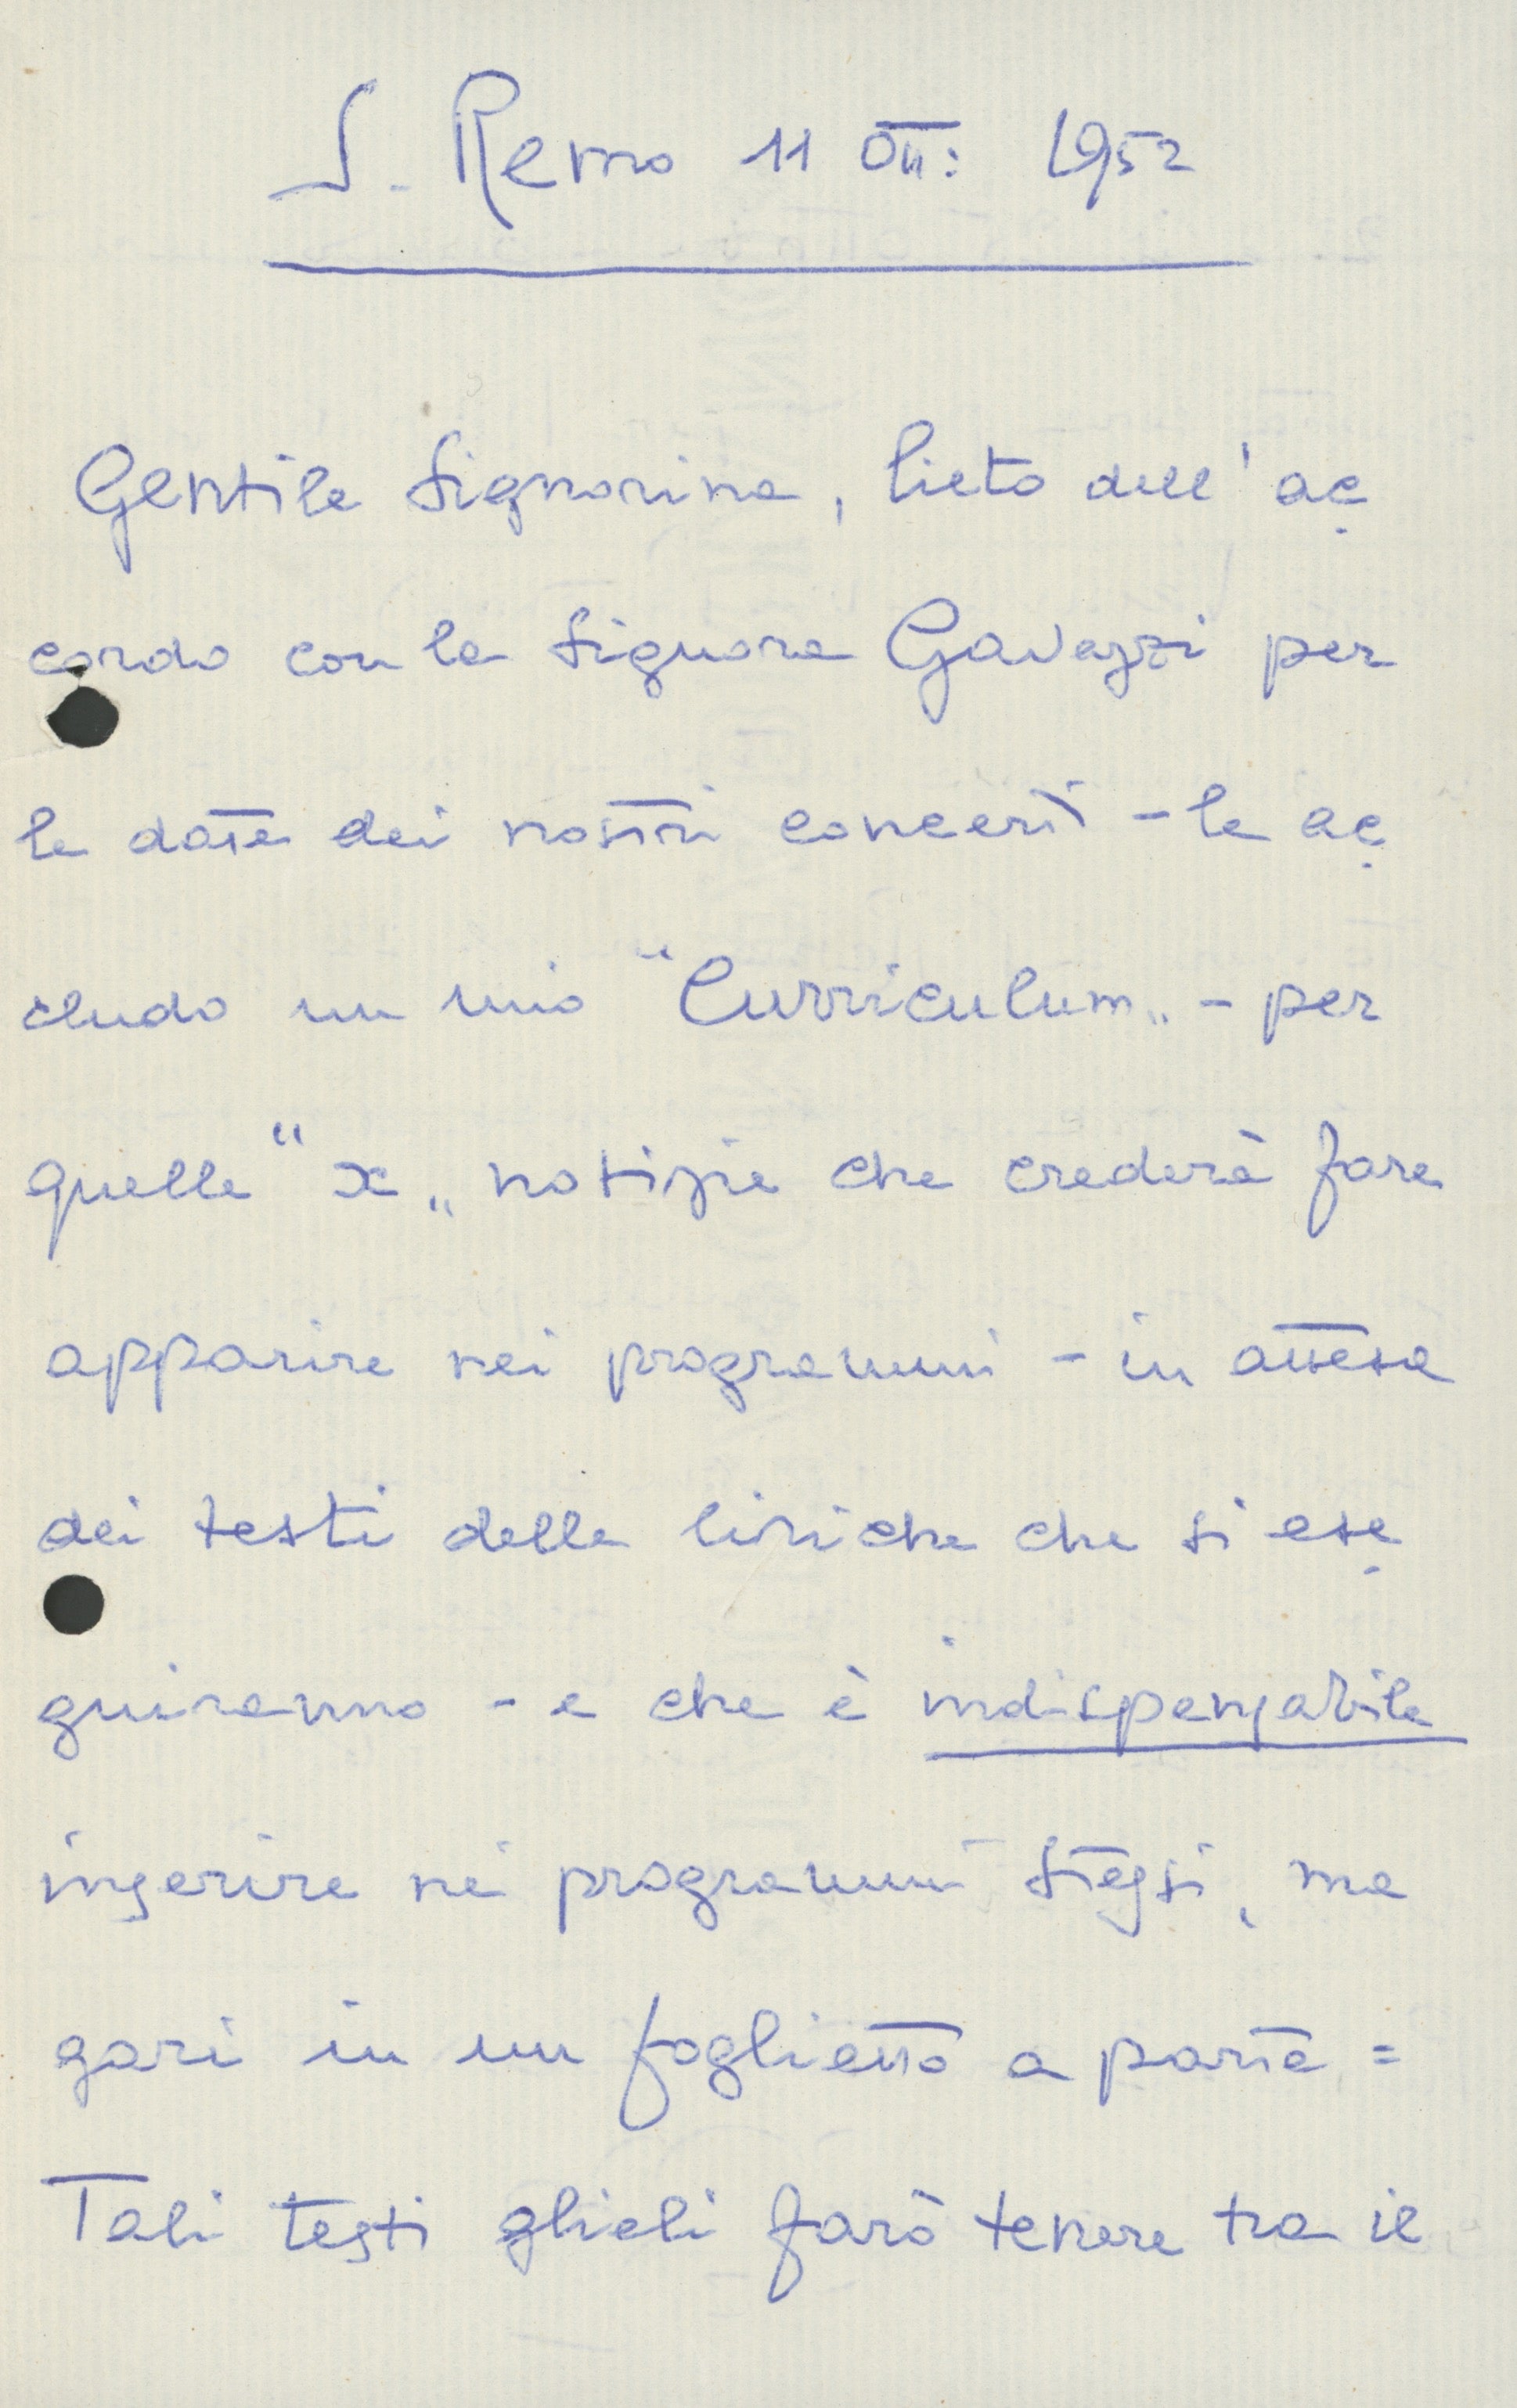 S. Remo 11 Ott: 1952
Gentile Signorina, lieto dell'ac
cordo con la Signora Gavazzi per
le date dei nostri concerti - le ac
cludo un mio "Curriculum„ - per
quelle "x„ notizie che crederà fare
apparire nei programmi - in attesa
dei testi delle liriche che si ese
guiranno - e che è indispensabile
inserire nei programmi stessi, ma
gari in un foglietto a parte =
Tali testi glieli farò tenere tra il